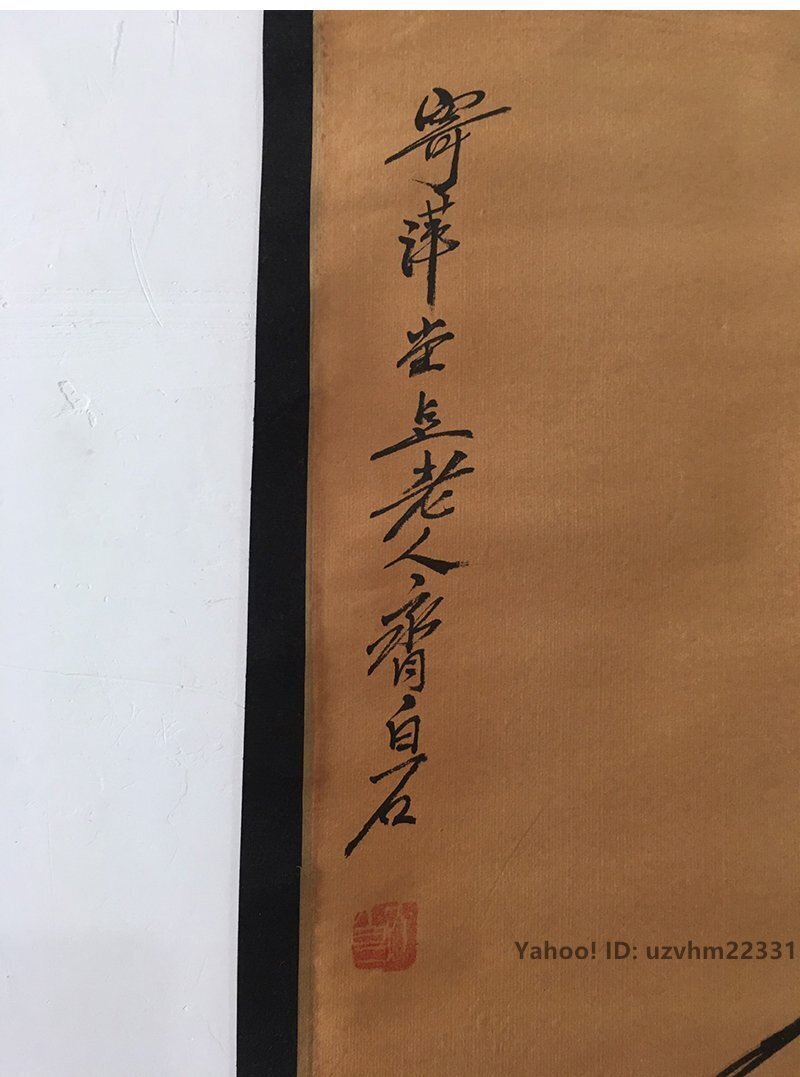 寄萍堂上老人齊白石
Yahoo! ID: uzvhm22331